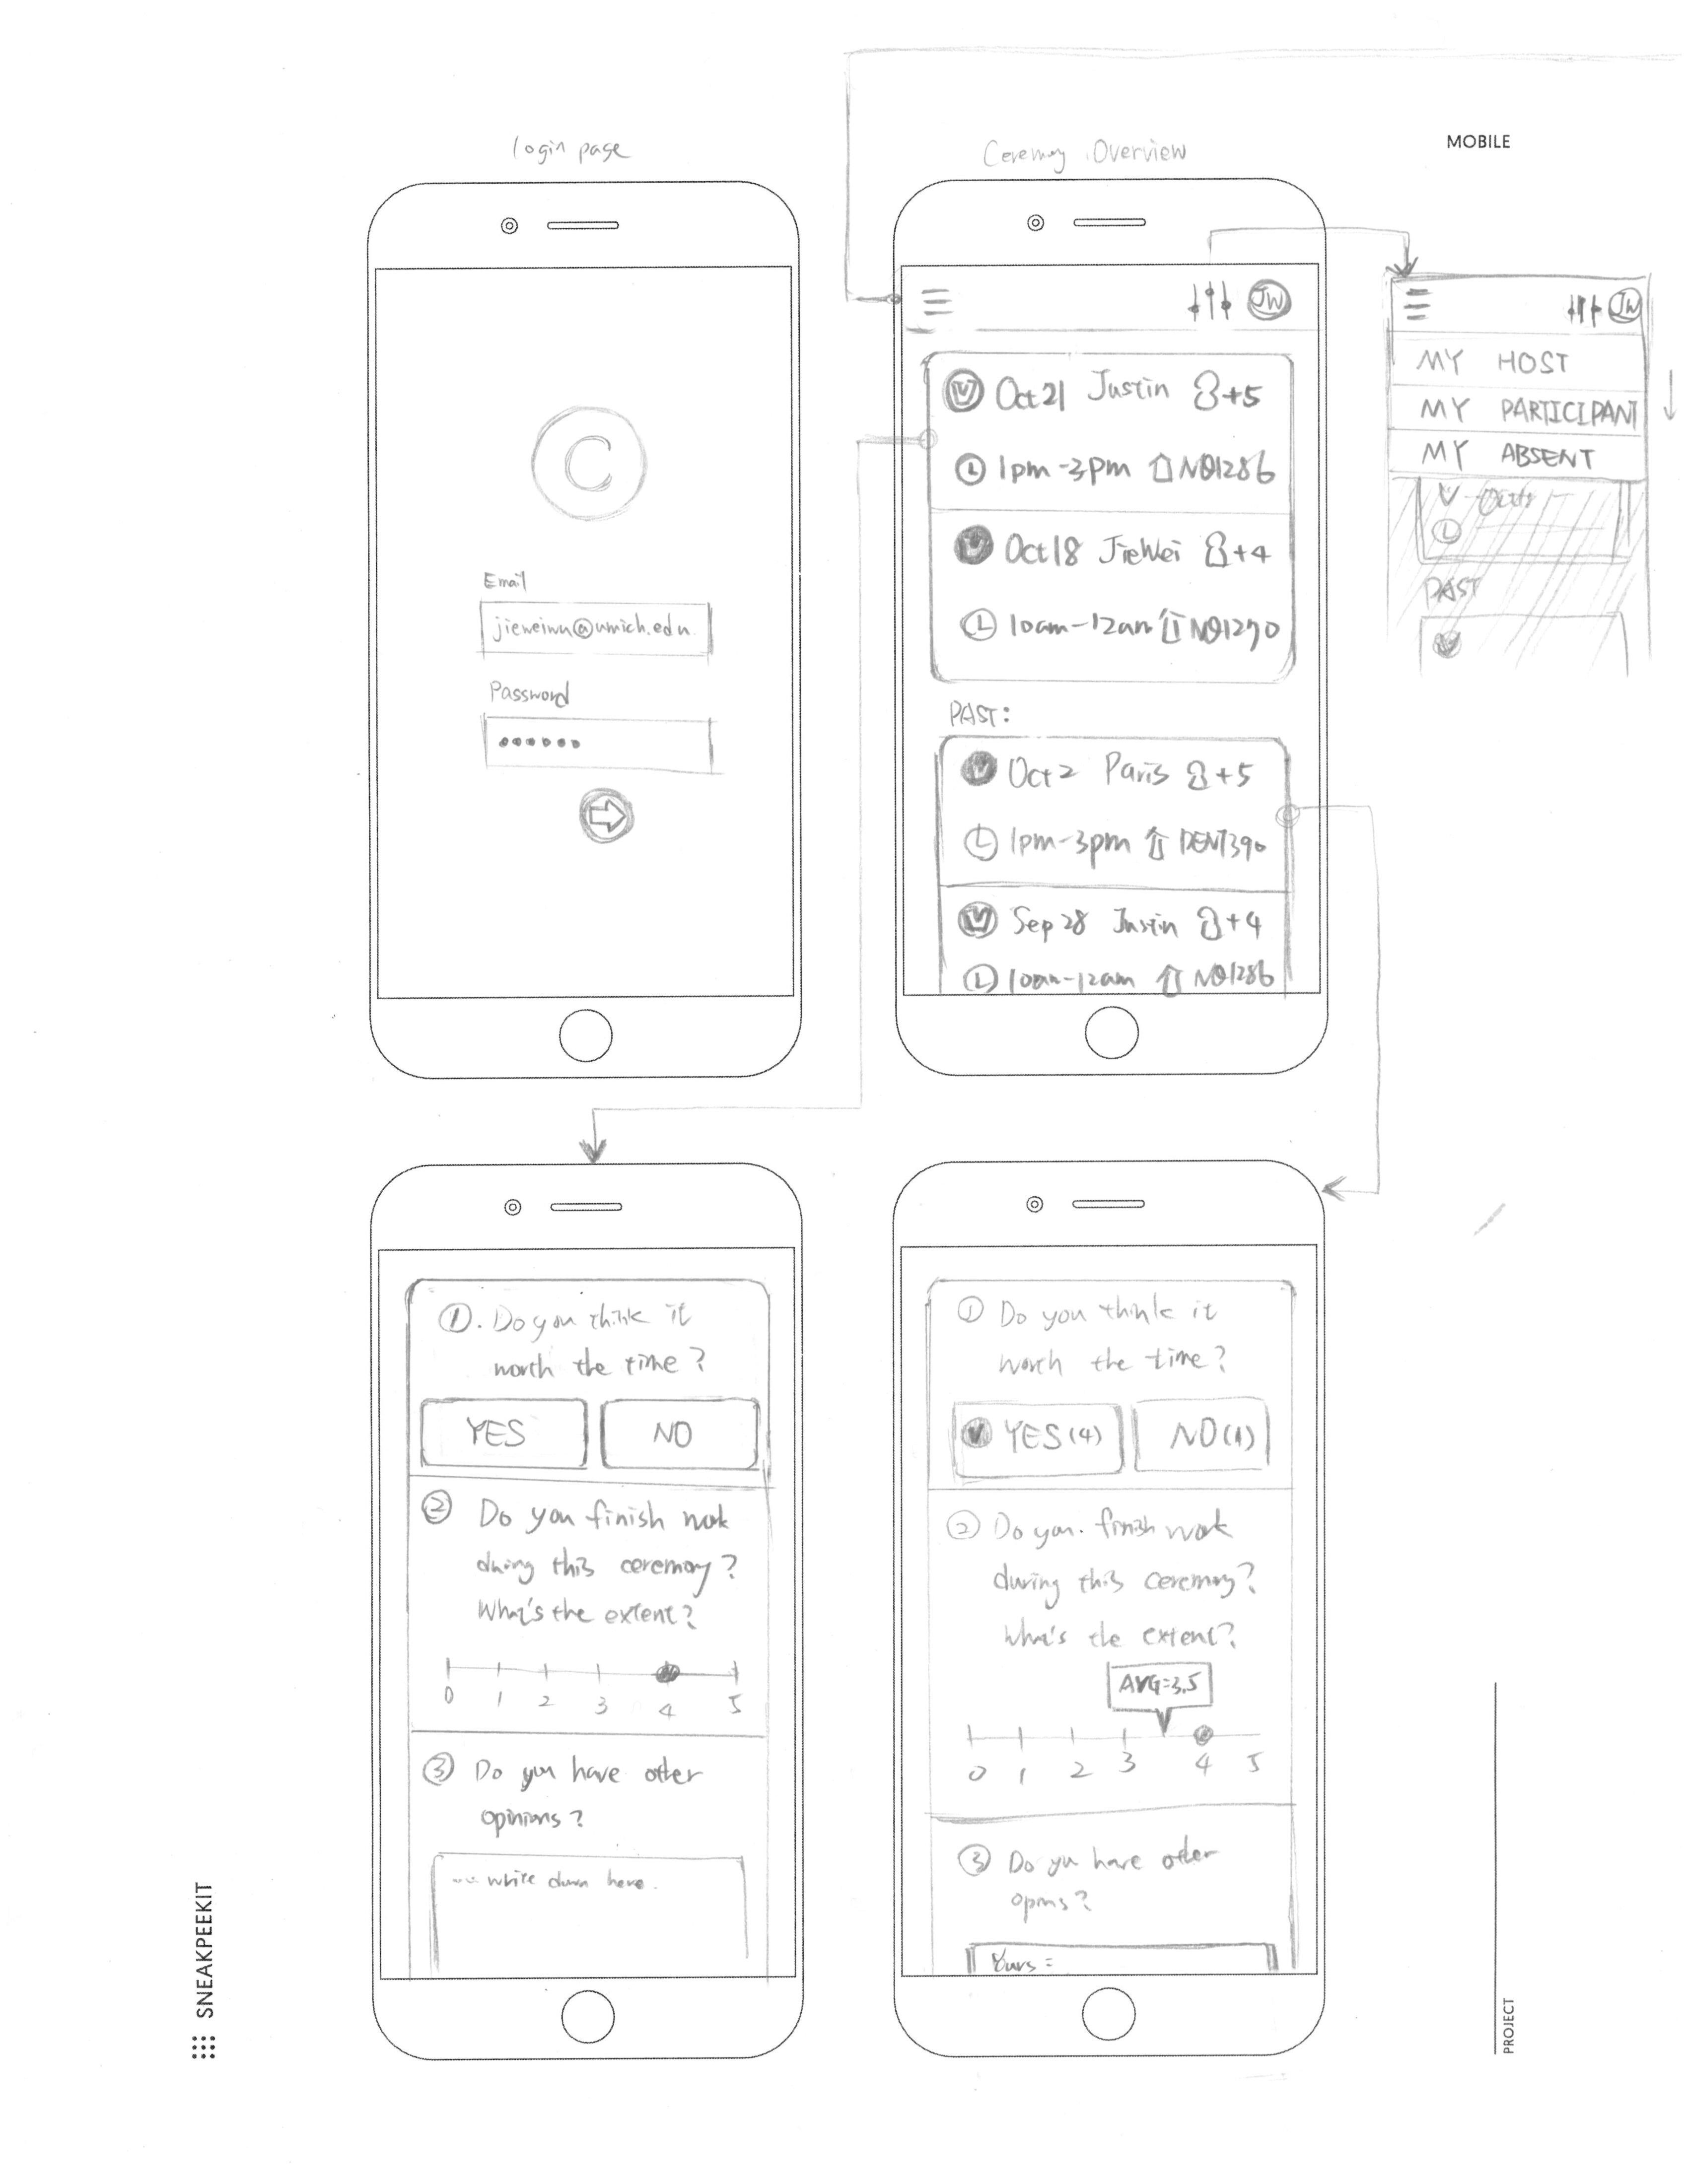 MOBILE
login page
C
Email
jieweiwu@umich.edu
Password
Ceremony Overview
JW
Oct 21 Justin +5
1pm-3pm NO1286
Oct 18 JieWei +4
10am-12am NO1270
PAST:
Oct 2 Paris +5
1pm-3pm DENT390
Sep 28 Justin +4
10am-12am NO1286
JW
MY HOST
MY PARTICIPANT
MY ABSENT
PAST
①. Do you think it
worth the time?
YES NO
② Do you finish work
during this ceremony?
What's the extent?
0 1 2 3 4 5
③ Do you have other
opinions?
... write down here.
① Do you think it
worth the time?
YES (4) NO (1)
② Do you finish work
during this ceremony?
What's the extent?
AVG=3.5
0 1 2 3 4 5
③ Do you have other
opins?
Yours =
SNEAKPEEKIT
PROJECT